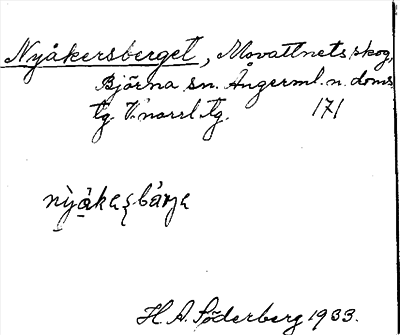 Nyåkersberget, Movattnets skog,
Björna sn. Ångerml. n. doms
tg. V. norrl. tg. 171
H. A. Söderberg 1933.